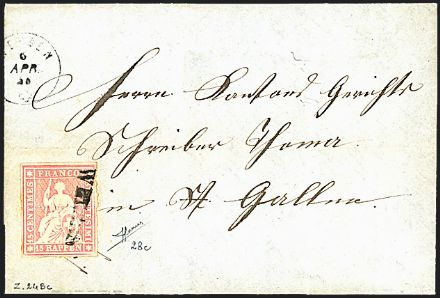 6
APR.
Herrn Kantons Gerichts
Schreiber Thoma.
in St. Gallen
FRANCO
15 CENTIMES
15 RAPPEN
28c
Z. 24Bc